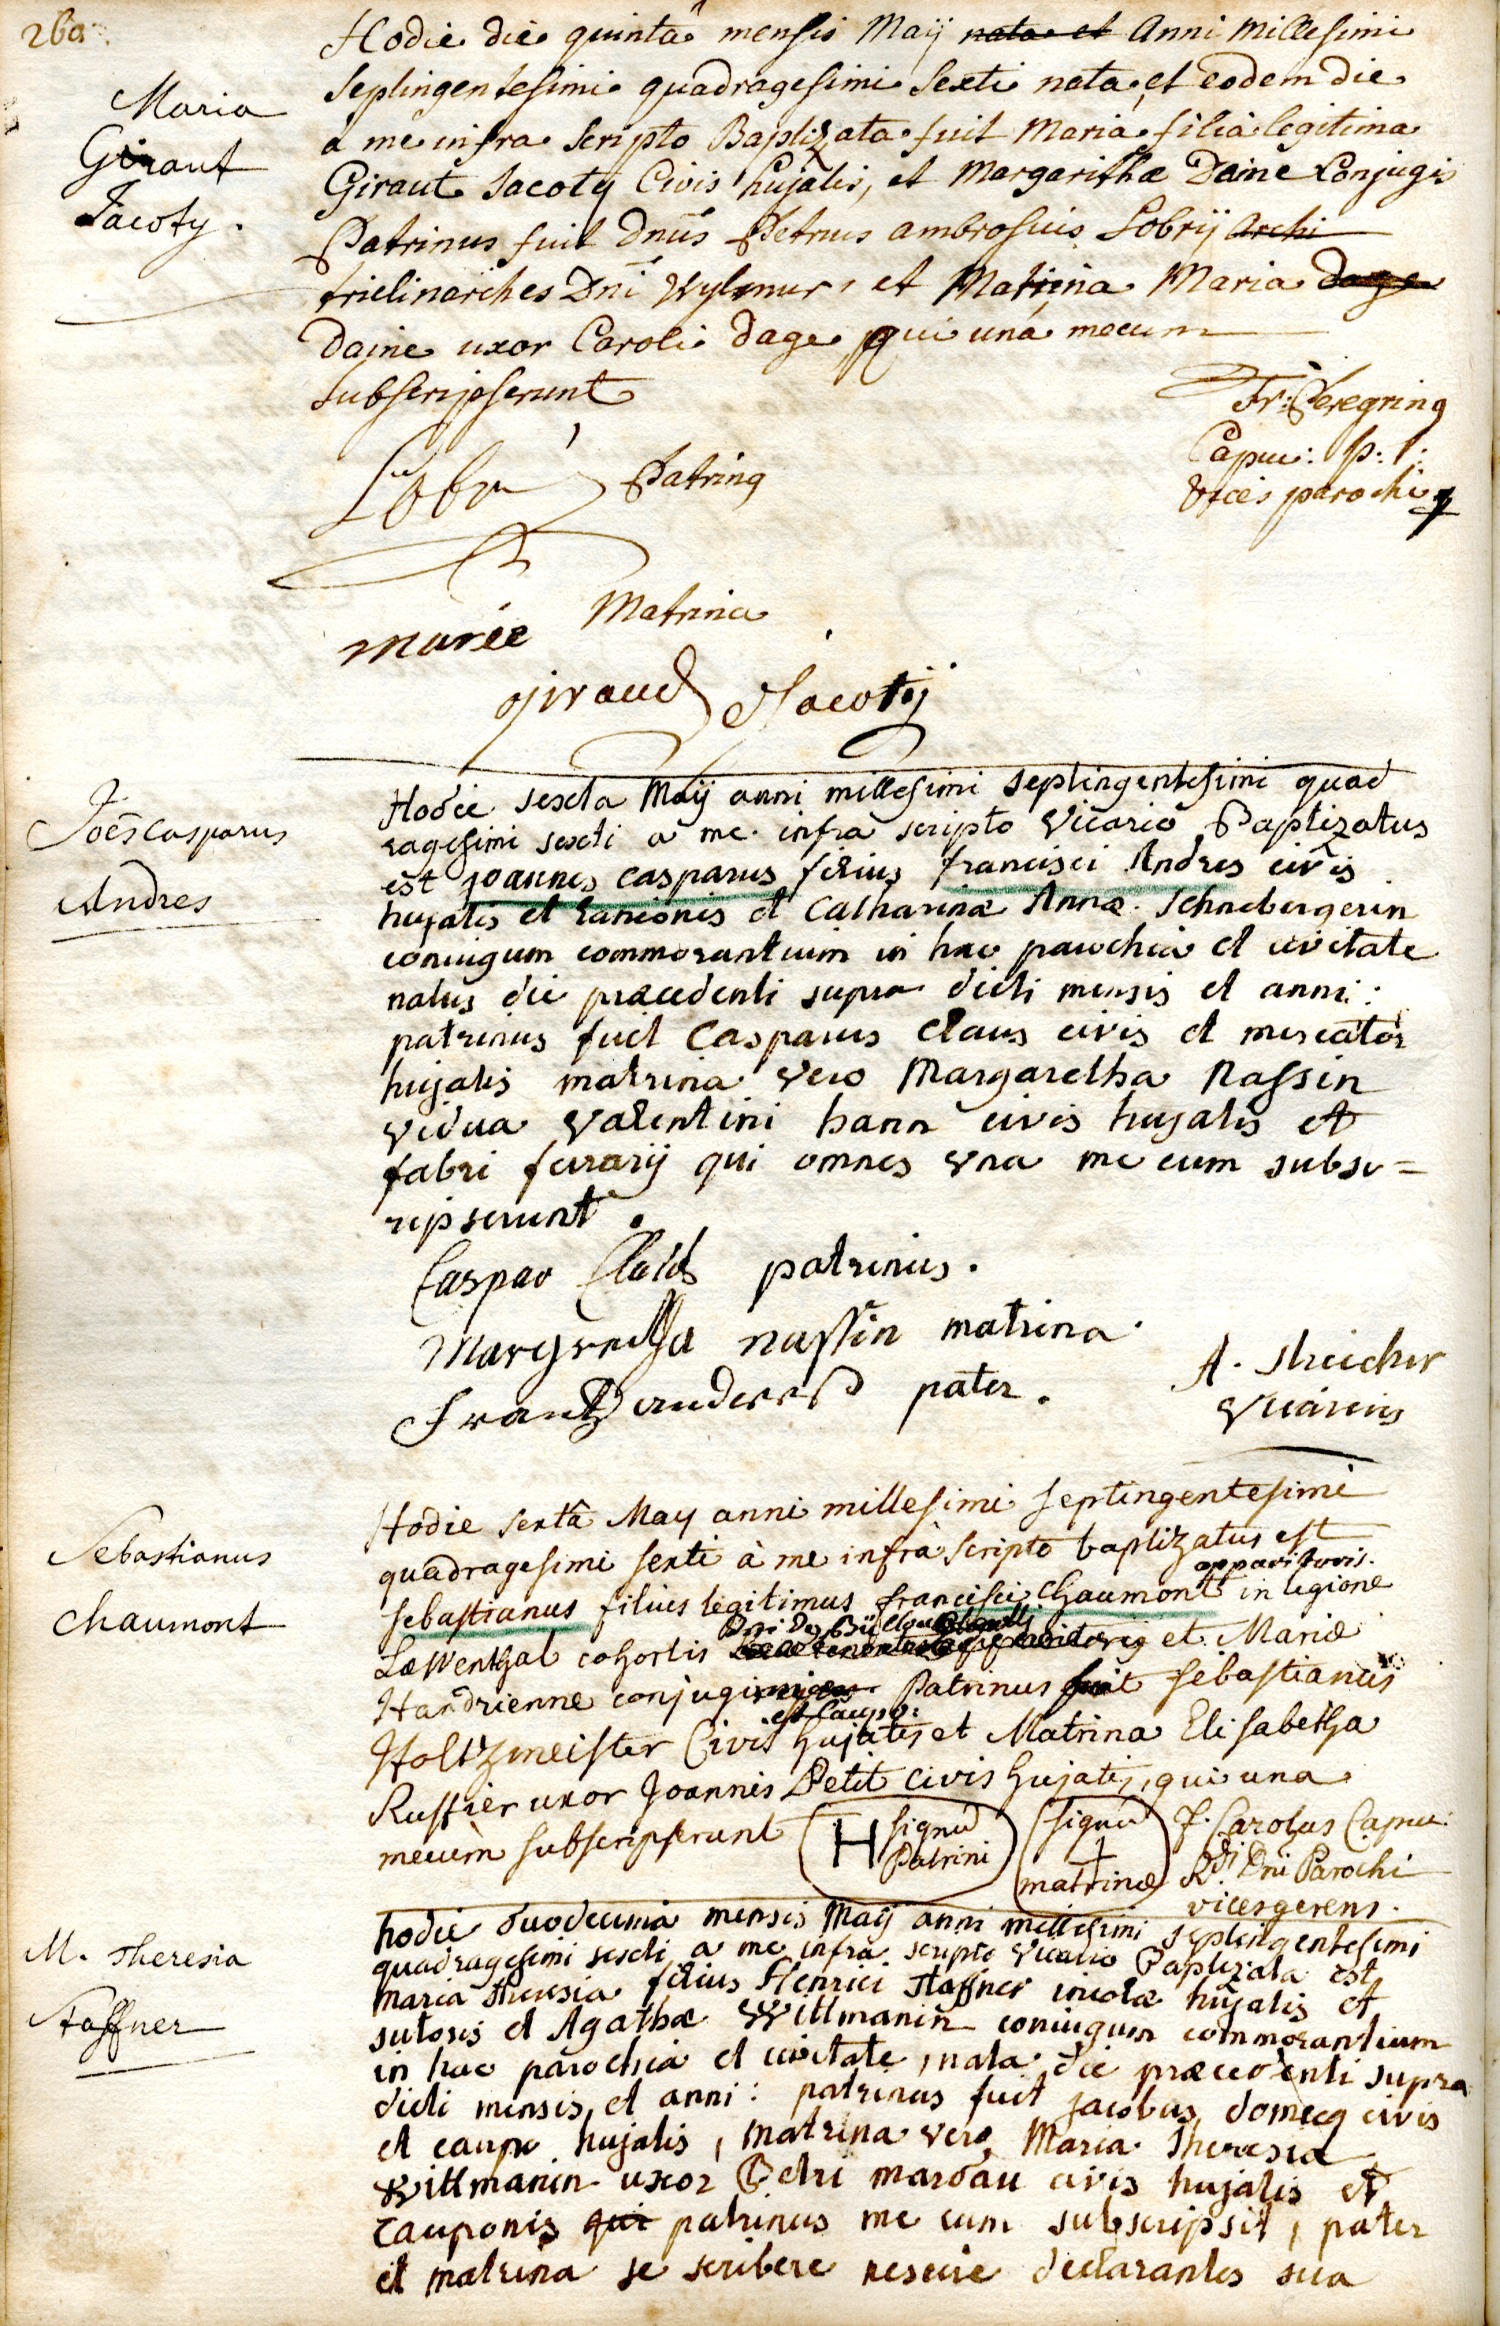 260.
Hodie die quintâ mensis Maij nata et Anni Millesimi
Septingentesimi quadragesimi Sexti nata, et eodem die
Maria
Giraut
Jacoty.
à me infra Scripto Baptizata fuit Maria filia legitima
Giraut Jacotij Civis hujatis, et Margarithæ Daine Conjugis
Patrinus fuit Dnūs Petrus ambrosius Lobrij Archi
triclinarches Dni Wylmur, et Matrina Maria dage
Daine uxor Caroli dage qui unà mecum
Subscripserunt
Fr: Peregrinq
Capuc: p: t:
vices parochi
Lobry Patrinq
Matrina
marie
giraud Jacotij
Joēs Casparus
Andres
Hodie sexta Maij anni millesimi septingentesimi quad
ragesimi sexti a me infra scripto Vicario Baptizatus
est joannes casparus filius francisci Andres civis
hujatis et lanionis et Catharinæ Annæ Schnebergerin
coniugum commorantium in hac parochia et civitate
natus die præcedenti supra dicti mensis et anni:
patrinus fuit Casparus Claus civis et mercator
hujatis matrina vero Margaretha Nassin
vidua Valentini hann civis hujatis et
fabri ferrarij qui omnes una me cum subsc=
ripserunt.
Caspar Claus patrinus.
Margretha nassin matrina.
Frantz anderes pater.
A. Streicher
Vicarius
Sebastianus
Chaumont
Hodie sextâ May anni millesimi septingentesimi
quadragesimi sexti à me infrà scripto baptizatus est
apparitoris.
sebastianus filius legitimus francisci Chaumont in legione
Læwenthal cohortis et Mariæ
Handrienne conjugum Patrinus fuit sebastianus
est caupo:
Holtzmeister Civis hujatis et Matrina Elisabetha
Russier uxor Joannis Petit civis hujatis, qui una
mecùm subscripserunt
H signū Patrini
signū + matrinæ
f. Carolus Capuc:
Rdi Dni Parochi
vicesgerens.
M. Theresia
Staffner
hodie duodecima mensis Maij anni millesimi septingentesimi
quadragesimi sexti a me infra scripto Vicario Baptizata est
Maria Theresia filius Henrici Staffner incolæ hujatis et
sutoris et Agathæ Wittmanin coniugum commorantium
in hac parochia et civitate, nata die præcedenti supra
dicti mensis, et anni: patrinus fuit jacobus domecq civis
et caupo hujatis, matrina vero Maria Theresia
Wittmanin uxor Petri mardau civis hujatis et
cauponis qui patrinus me cum subscripsit, pater
et matrina se scribere nescire declarantes sua